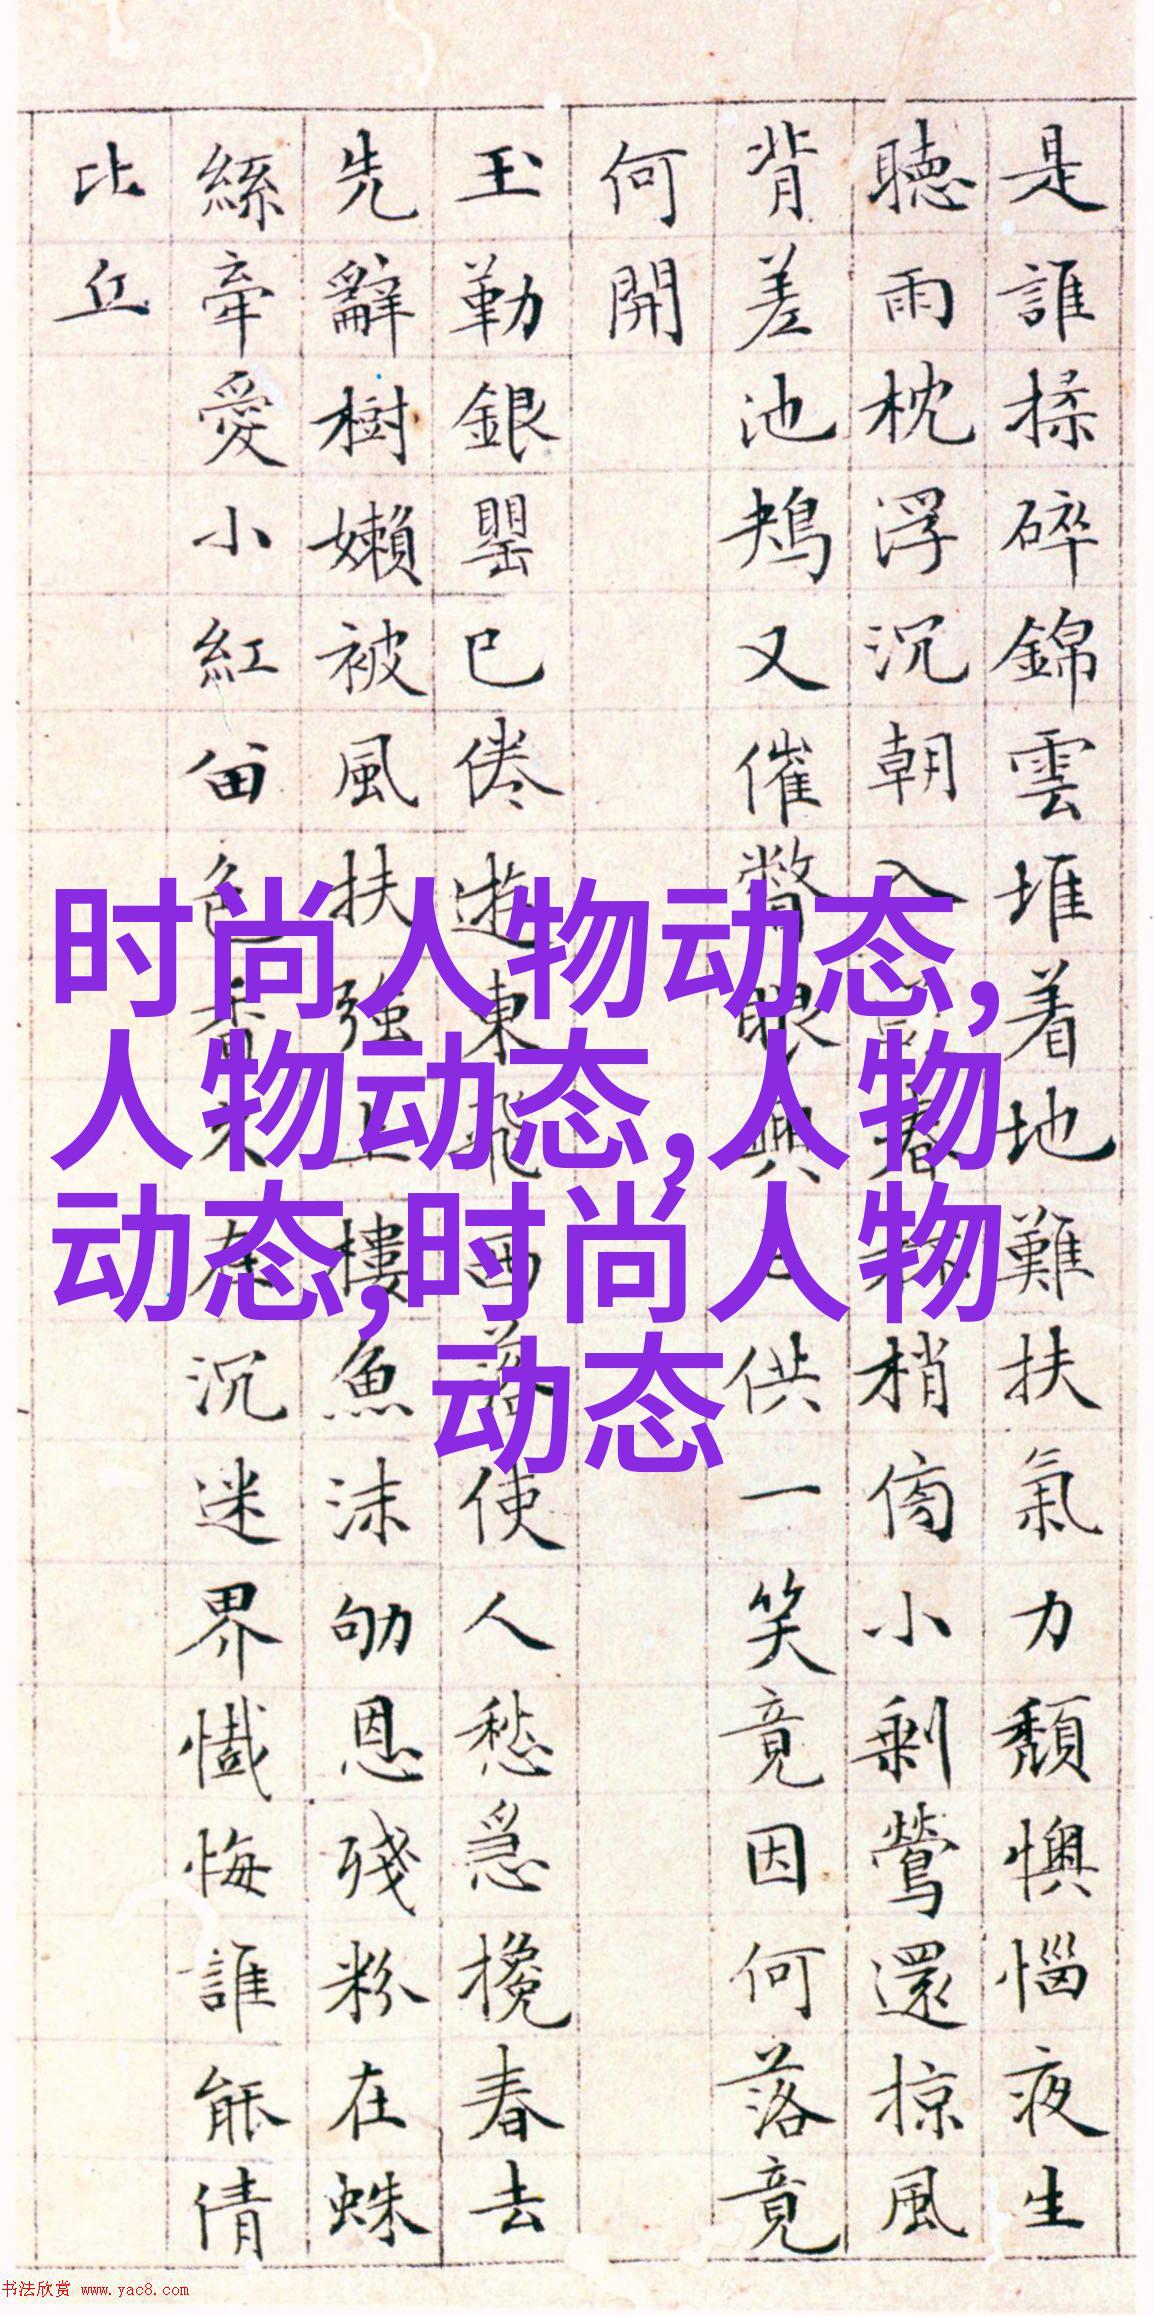 是誰揉碎錦雲堆着地難扶氣力頹懊惱夜生
聽雨枕浮沉朝入春梢傍小剩鶯還掠風
背差池鴂又催瞥眼興供一笑竟因何落竟
何開
玉勒銀罌已倦遊東飛西落使人愁急攙春去
先辭樹嬾被風扶強上樓魚沫劬恩殘粉在蛛
絲牽愛小紅留色香未在沉迷界懺悔誰能倩
比丘
时尚人物动态,
人物动态,人物
动态,时尚人物
动态
书法欣赏 www.yac8.com